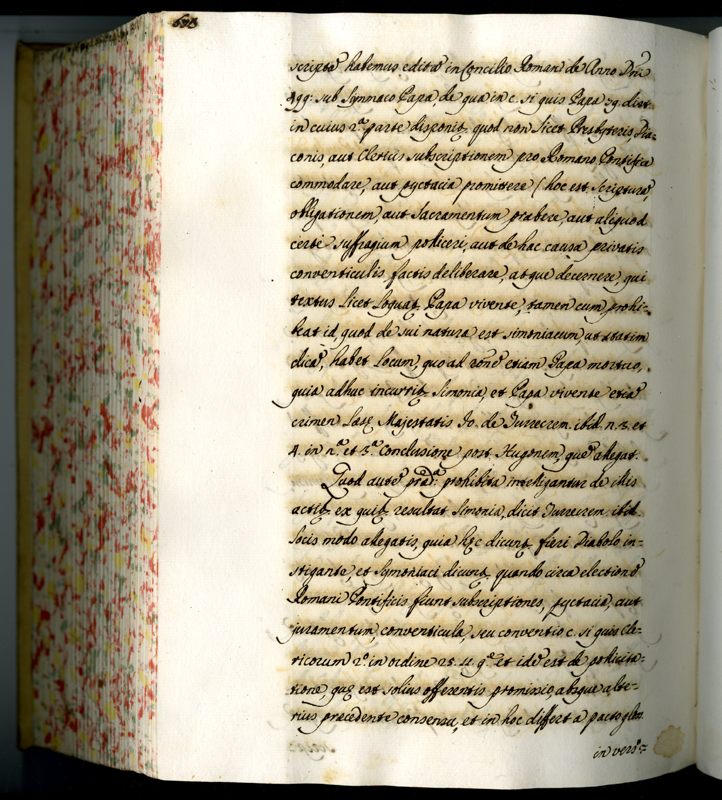 scripta habemus edita in Concilio Roman de Anno Dni
499: sub Symmaco Papa de qua in c. si quis Papa 79. dist.
in cuius 2ª parte disponit quod non licet Presbyteris, Dia=
conis, aut Clericis subscriptionem pro Romano Pontifice
commodare, aut pyctacia promittere (hoc est scriptura,
obligationem, aut Sacramentum prabere, aut aliquod
certè suffragium polliceri, aut de hac causa privatis
conventiculis factis deliberare, atque decernere, qui
textus licet loquat, Papa vivente, tamen cum prohi=
beat id, quod de sui natura est simoniacum, ut statim
dica, habet locum, quo ad rone etiam Papa mortuo,
quia adhuc incurrit simonia, et Papa vivente etia
crimen Lase Majestatis Jo. de Turrecrem. ibid. n. 3. et
4. in nª et 3ª conclusione post Hugonem, que allegat.
Quod aute prad.ª prohibita intelligantur de illis
actib ex quib resultat simonia, dicit Turrecrem. ibid.
locis modo allegatis, quia hec dicunt fieri Diabolo in=
stigante, et Symoniaci dicunt quando circa electione
Romani Pontificis fiunt subscriptiones, pyctacia, aut
juramentum, conventicula, seu conventio c. si quis Cle=
ricorum 2º in ordine 25. 11. qª et ide est de pollicita=
tione, que est solius offerentis promissio absque alte=
rius precedente consensu, et in hoc differt a pacto glos.
in vers.º=